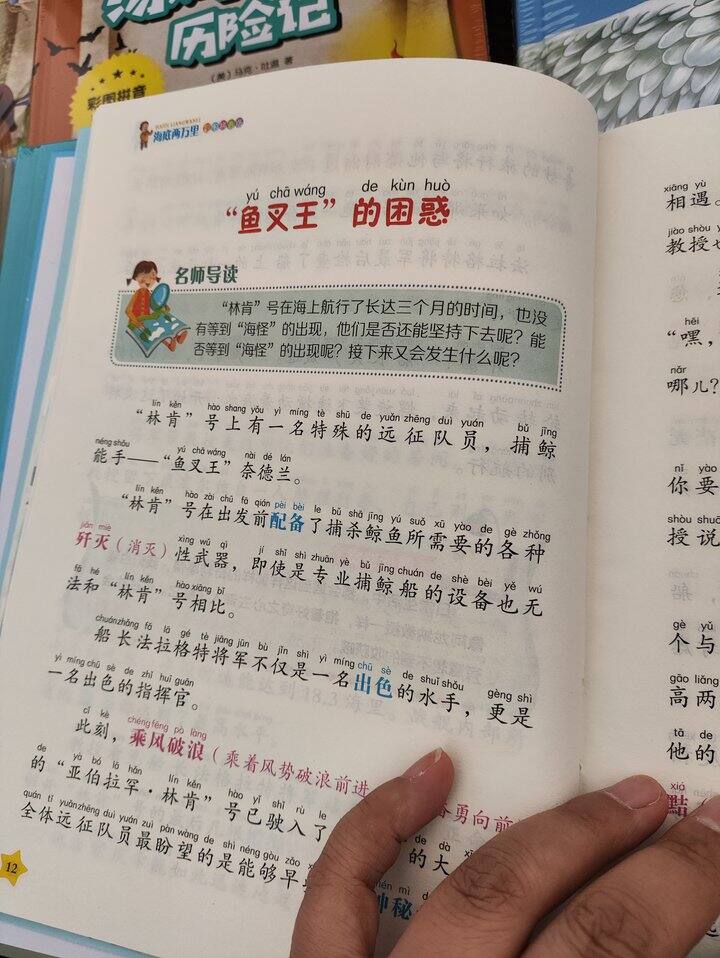 历险记
（美）马克·吐温 著
彩图拼音
HAIDI LIANGWANLI
海底两万里
yú chā wáng de kùn huò
“鱼叉王”的困惑
名师导读
“林肯”号在海上航行了长达三个月的时间，也没
有等到“海怪”的出现，他们是否还能坚持下去呢？能
否等到“海怪”的出现呢？接下来又会发生什么呢？
lín kěn hào shang yǒu yì míng tè shū de yuǎn zhēng duì yuán bǔ jīng
“林肯”号上有一名特殊的远征队员，捕鲸
néng shǒu yú chā wáng nài dé lán
能手——“鱼叉王”奈德兰。
lín kěn hào zài chū fā qián pèi bèi le bǔ shā jīng yú suǒ xū yào de gè zhǒng
“林肯”号在出发前配备了捕杀鲸鱼所需要的各种
jiān miè xìng wǔ qì jí shǐ shì zhuān yè bǔ jīng chuán de shè bèi yě wú
歼灭（消灭）性武器，即使是专业捕鲸船的设备也无
fǎ hé lín kěn hào xiāng bǐ
法和“林肯”号相比。
chuán zhǎng fǎ lā gé tè jiāng jūn bù jǐn shì yì míng chū sè de shuǐ shǒu gèng shì
船长法拉格特将军不仅是一名出色的水手，更是
yì míng chū sè de zhǐ huī guān
一名出色的指挥官。
cǐ kè chéng fēng pò làng
此刻，乘风破浪（乘着风势破浪前进
奋勇向前
de yà bó lā hǎn lín kěn hào yǐ shǐ rù le
的“亚伯拉罕·林肯”号已驶入了
de dà
的大
quán tǐ yuǎn zhēng duì yuán zuì pàn wàng de shì néng gòu zǎo
全体远征队员最盼望的是能够早
mì
神秘
12
xiāng yù
相遇。
jiào shòu
教授
hēi
“嘿，
nǎr
哪儿？
nǐ yào
你要
shòu shuō
授说
船
gè yǔ
个与
gāo liǎng
高两
tā de
他的
xiá
黠